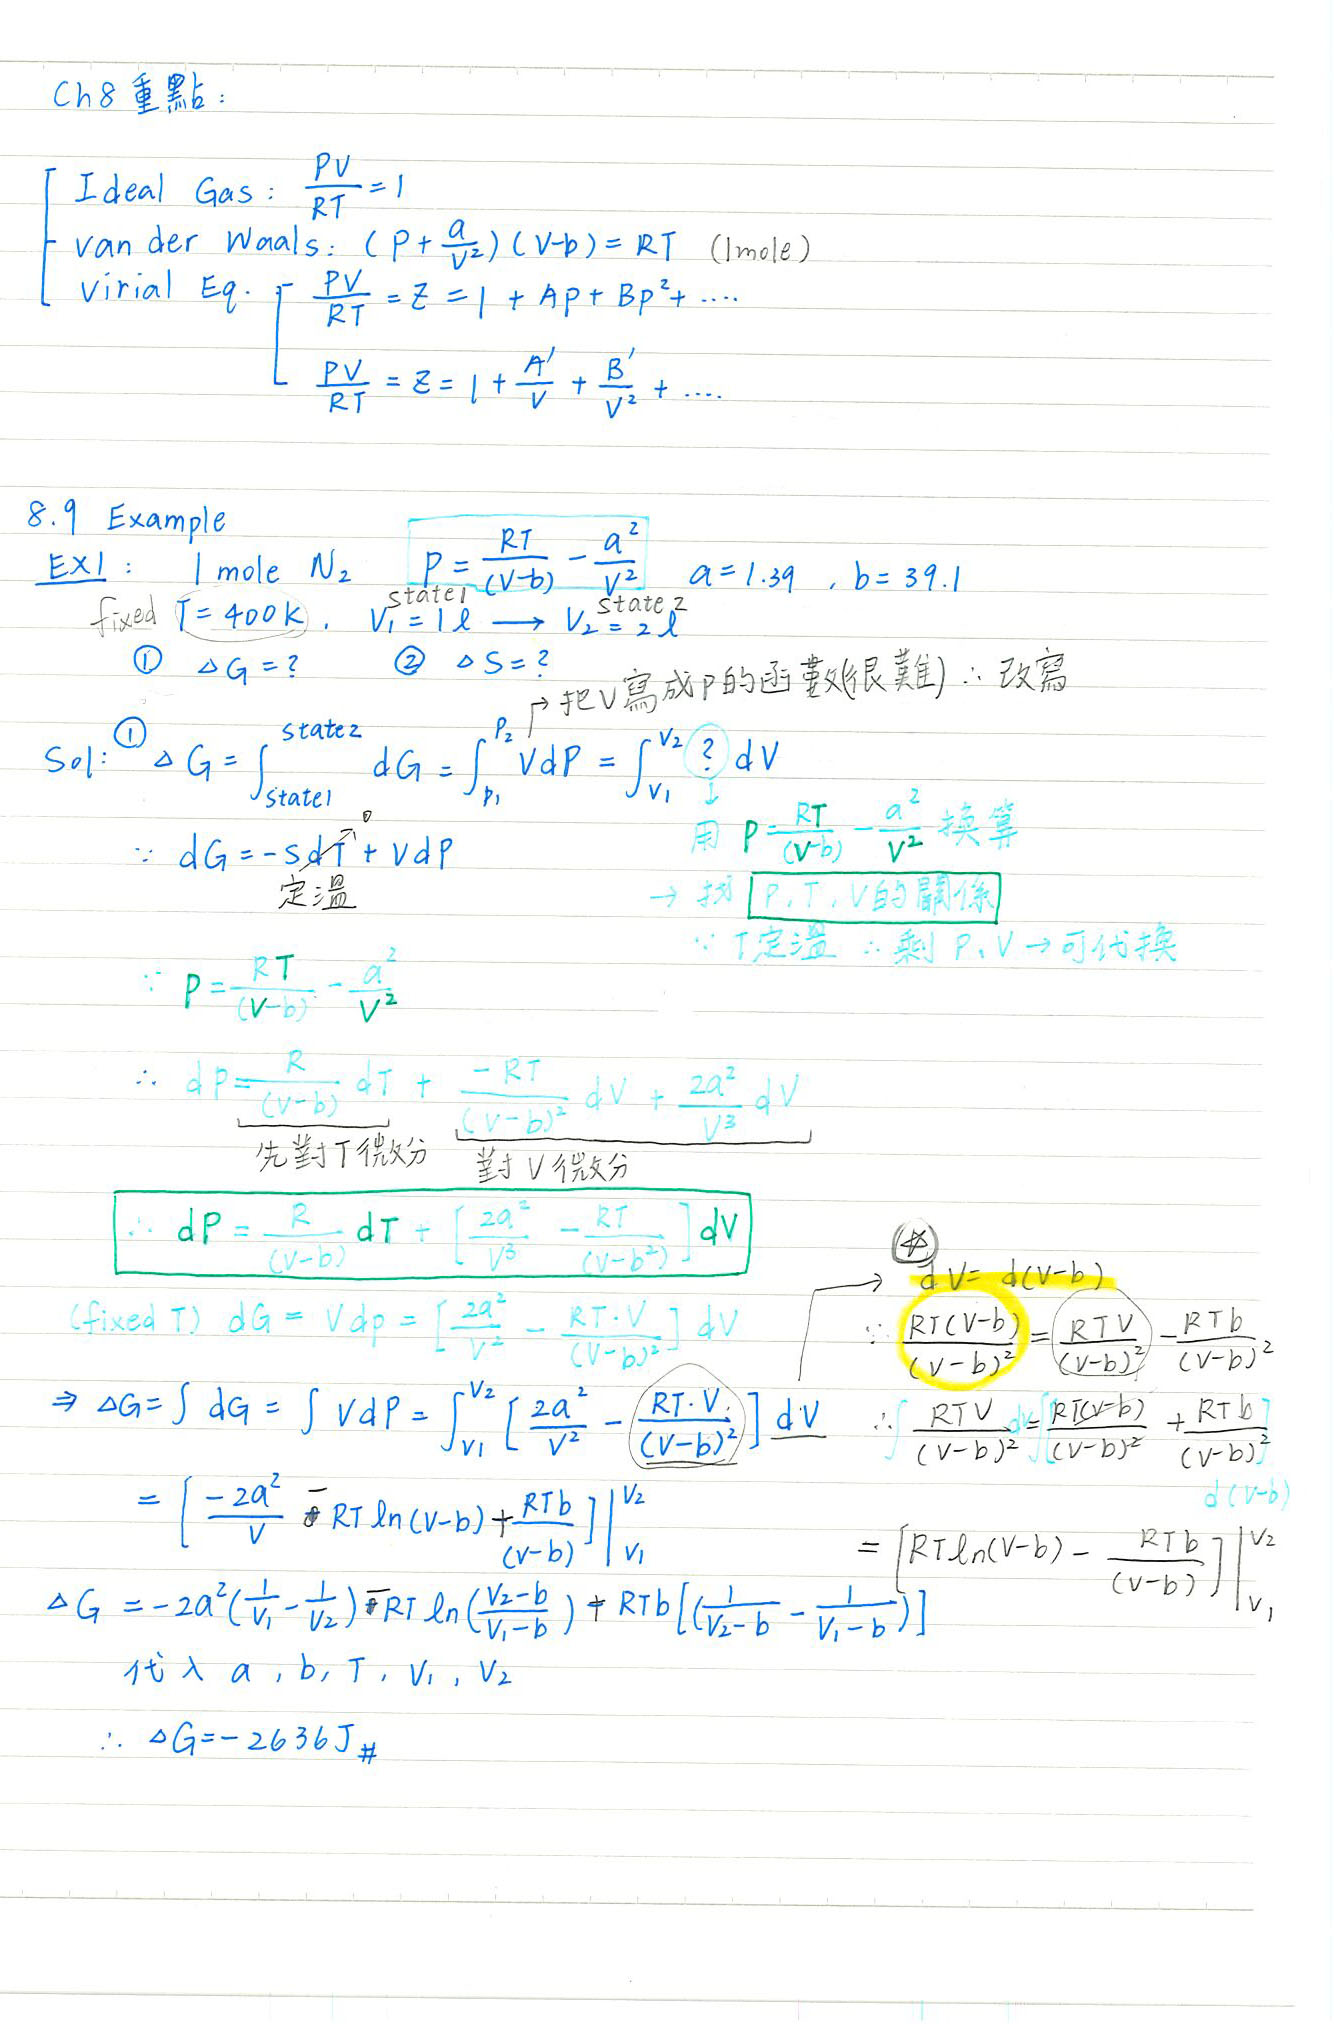 Ch8 重點:
Ideal Gas: PV/RT = 1
van der Waals: (P + a/V²)(V-b) = RT (1mole)
Virial Eq. PV/RT = Z = 1 + AP + BP² + ....
PV/RT = Z = 1 + A'/V + B'/V² + ....
8.9 Example
EX1: 1 mole N₂ P = RT/(V-b) - a²/V² a = 1.39, b = 39.1
fixed T = 400K, state1 V₁ = 1ℓ → state2 V₂ = 2ℓ
① △G = ? ② △S = ?
→ 把V寫成P的函數(很難) ∴ 改寫
Sol: ① △G = ∫_state1^state2 dG = ∫_P₁^P₂ VdP = ∫_V₁^V₂ ? dV
↓ 用 P = RT/(V-b) - a²/V² 換算
∵ dG = -SdT⁰ + VdP
定溫
→ 找 P, T, V的關係
∵ T定溫 ∴ 剩 P, V → 可代換
∵ P = RT/(V-b) - a²/V²
∴ dP = R/(V-b) dT + -RT/(V-b)² dV + 2a²/V³ dV
先對T微分 對V微分
∴ dP = R/(V-b) dT + [2a²/V³ - RT/(V-b²)] dV
(fixed T) dG = Vdp = [2a²/V² - RT·V/(V-b)²] dV
⇒ △G = ∫ dG = ∫ VdP = ∫_V₁^V₂ [2a²/V² - RT·V/(V-b)²] dV
= [-2a²/V - RT ln(V-b) + RTb/(V-b)] |_V₁^V₂
△G = -2a²(1/V₁ - 1/V₂) - RT ln(V₂-b/V₁-b) + RTb[(1/V₂-b - 1/V₁-b)]
代入 a, b, T, V₁, V₂
∴ △G = -2636J #
☆
→ dV = d(V-b)
∵ RT(V-b)/(V-b)² = RTV/(V-b)² - RTb/(V-b)²
∴ ∫ RTV/(V-b)² dV = ∫[RT(V-b)/(V-b)² + RTb/(V-b)²]
d(V-b)
= [RTln(V-b) - RTb/(V-b)] |_V₁^V₂